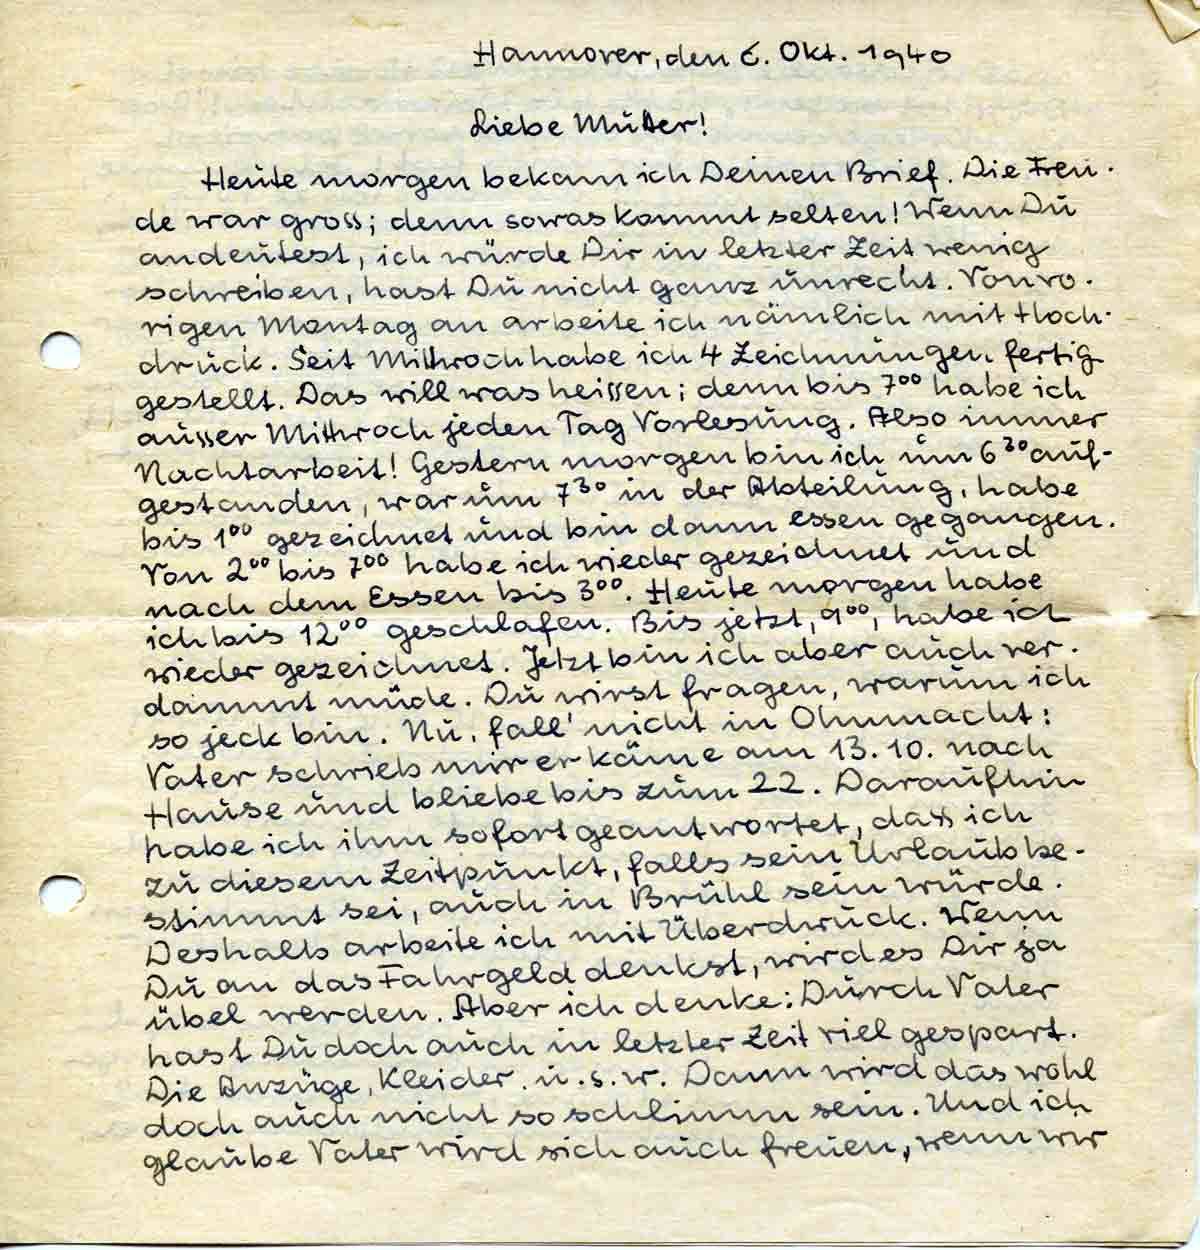 Hannover, den 6. Okt. 1940
Liebe Mutter!
Heute morgen bekam ich Deinen Brief. Die Freu-
de war gross; denn sowas kommt selten! Wenn Du
andeutest, ich würde Dir in letzter Zeit wenig
schreiben, hast Du nicht ganz unrecht. Von vo-
rigen Montag an arbeite ich nämlich mit Hoch-
druck. Seit Mittwoch habe ich 4 Zeichnungen fertig
gestellt. Das will was heissen; denn bis 7⁰⁰ habe ich
ausser Mittwoch jeden Tag Vorlesung. Also immer
Nachtarbeit! Gestern morgen bin ich um 6³⁰ auf-
gestanden, war um 7³⁰ in der Abteilung, habe
bis 1⁰⁰ gezeichnet und bin dann essen gegangen.
Von 2⁰⁰ bis 7⁰⁰ habe ich wieder gezeichnet und
nach dem Essen bis 3⁰⁰. Heute morgen habe
ich bis 12⁰⁰ geschlafen. Bis jetzt, 9⁰⁰, habe ich
wieder gezeichnet. Jetzt bin ich aber auch ver-
dammt müde. Du wirst fragen, warum ich
so jeck bin. Nu, fall' nicht in Ohnmacht:
Vater schrieb mir er käme am 13.10. nach
Hause und bliebe bis zum 22. Daraufhin
habe ich ihm sofort geantwortet, dass ich
zu diesem Zeitpunkt, falls sein Urlaub be-
stimmt sei, auch in Brühl sein würde.
Deshalb arbeite ich mit Überdruck. Wenn
Du an das Fahrgeld denkst, wird es Dir ja
übel werden. Aber ich denke: Durch Vater
hast Du doch auch in letzter Zeit viel gespart.
Die Anzüge, Kleider u.s.w. Dann wird das wohl
doch auch nicht so schlimm sein. Und ich
glaube Vater wird sich auch freuen, wenn wir